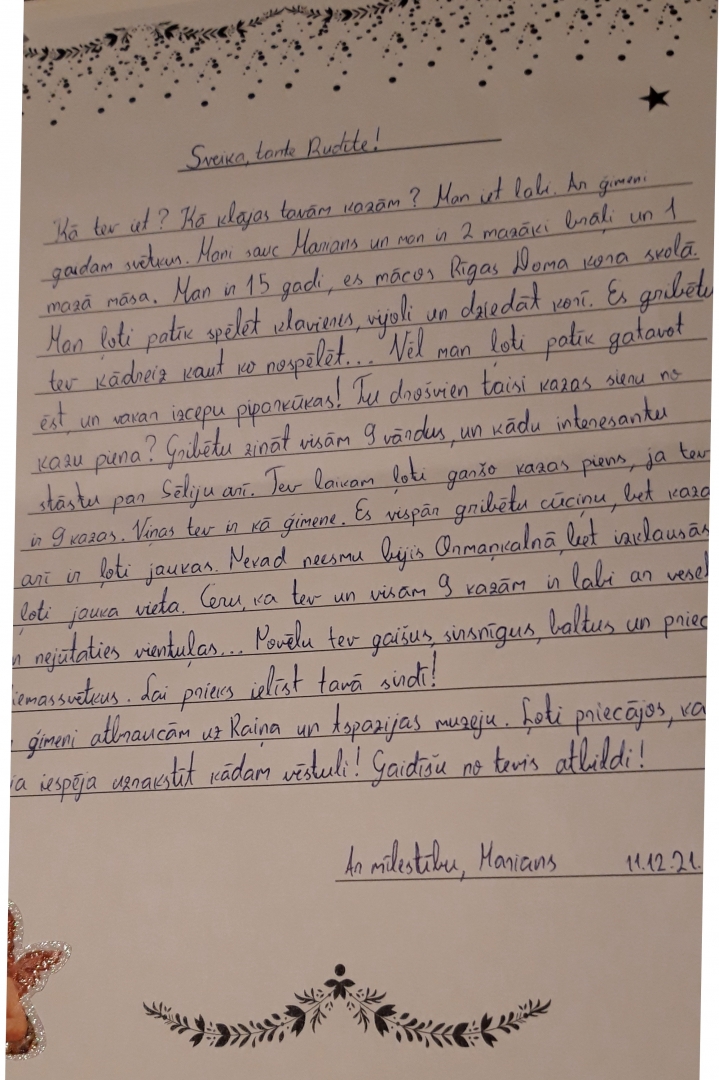 Sveika, tante Rudīte!
Kā tev iet? Kā klājas tavām kazām? Man iet labi. Ar ģimeni
gaidam svētkus. Mani sauc Marians un man ir 2 mazāki brāļi un 1
mazā māsa. Man ir 15 gadi, es mācos Rīgas Doma kora skolā.
Man ļoti patīk spēlēt klavieres, vijoli un dziedāt korī. Es gribētu
tev kādreiz kaut ko nospēlēt... Vēl man ļoti patīk gatavot
ēst, un vakar izcepu piparkūkas! Tu drošvien taisi kazas sieru no
kazu piena? Gribētu zināt visām 9 vārdus, un kādu interesantu
stāstu par Sēliju arī. Tev laikam ļoti garšo kazas piens, ja tev
ir 9 kazas. Viņas tev ir kā ģimene. Es vispār gribētu cūciņu, bet kaza
arī ir ļoti jaukas. Nekad neesmu bijis Ormaņkalnā, bet izklausās
ļoti jauka vieta. Ceru, ka tev un visām 9 kazām ir labi ar vesel
n nejūtaties vientuļas... Novēlu tev gaišus, sirsnīgus, baltus un priec
iemassvētkus. Lai prieks ielīst tavā sirdī!
ģimeni atbraucām uz Raiņa un Aspazijas muzeju. Ļoti priecājos, ka
ja iespēja uzrakstīt kādam vēstuli! Gaidīšu no tevis atbildi!
Ar mīlestību, Marians 11.12.21.